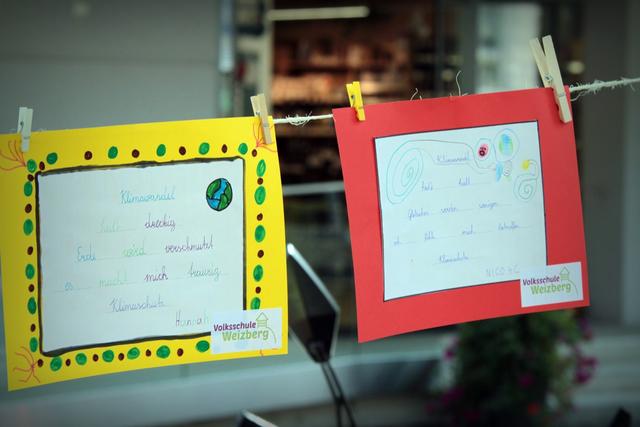 Klimawandel
kalt dreckig
Erde wird verschmutzt
es macht mich traurig
Klimaschutz
Hannah
Volksschule
Weizberg
Klimawandel
heiß kalt
Gletscher werden weniger
ich fühle mich betroffen
Klimakrise
NICO 4C
Volksschule
Weizberg